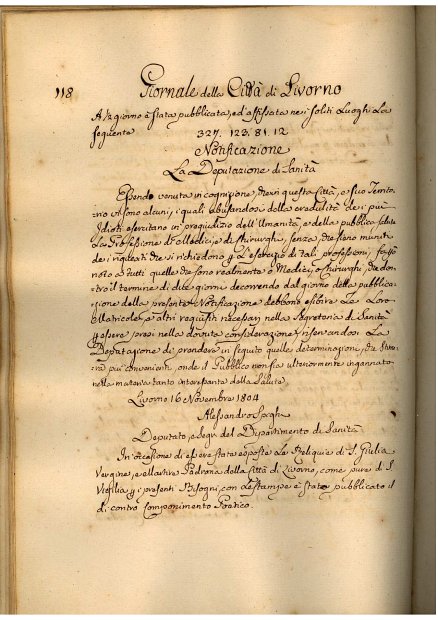 118 Giornale della Città di Livorno
A 1/2 giorno è stata pubblicata, ed affissata nei soliti Luoghi La
seguente 327. 123. 81. 12
Notificazione
La Deputazione di Sanità
Essendo venuta in cognizione, che in questa Città, e suo Territo-
rio vi sono alcuni, i quali abusandosi della credulità dei più
Idioti esercitano in pregiudizio dell'Umanità, e della pubblica salute
La Professione di Medici, e di Chirurghi, senza, che sieno muniti
dei requisiti che si richiedono per L'esercizio di tali professioni, fa
noto a tutti quelli che sono realmente o Medici, o Chirurghi, che den-
tro il termine di dieci giorni decorrendo dal giorno della pubblica-
zione della presente Notificazione debbono esibire Le Loro
Matricole, e altri requisiti necessari nella Segreteria di Sanità
per essere presi nella dovuta considerazione riservandosi La
Deputazione di prendere in seguito quelle determinazioni, che
più convenienti, onde il Pubblico non sia ulteriormente ingannato
nella materia tanto interessante della Salute.
Livorno 16 Novembre 1804
Alessandro
Deputato, e Segr. del Dipartimento di Sanità
In occasione di essere state esposte Le Reliquie di S. Giulia
Vergine, e Martire Padrona della Città di Livorno, come pure di S.
per i presenti Bisogni, con Le stampe è stato pubblicato il
di contro Componimento Poetico.